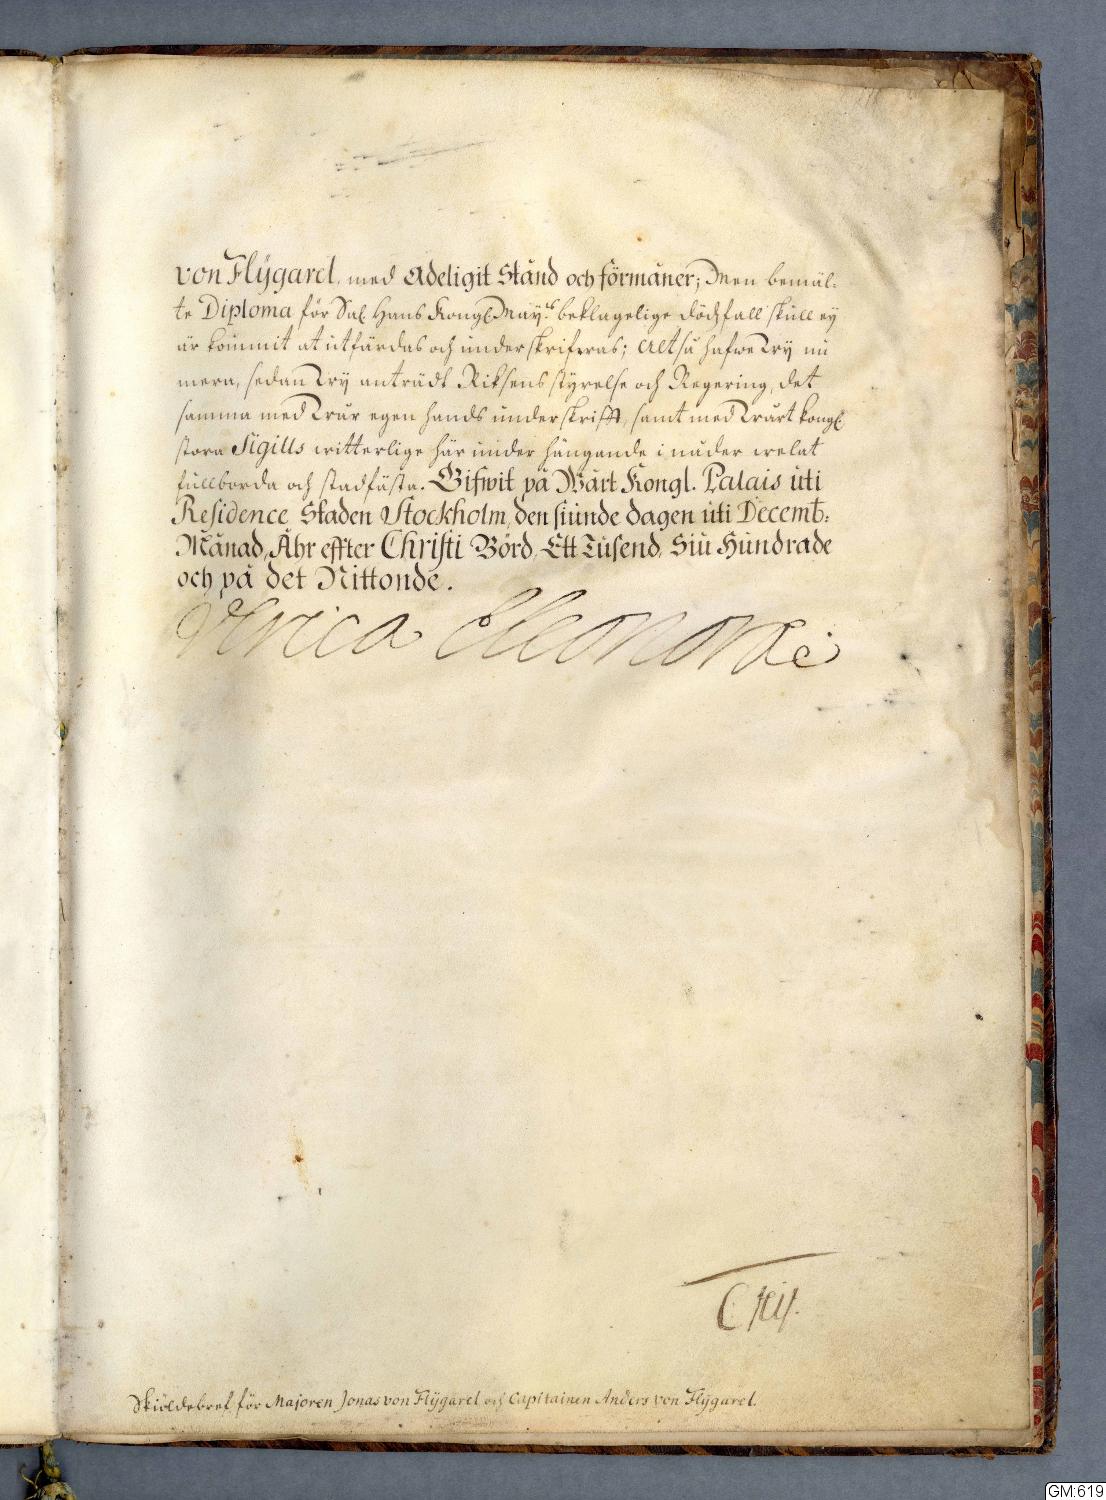 von Flÿgarel, med Adeligit Stånd och förmåner; Men bemäl-
te Diploma för Sal. Hans Kongl. Maÿ.ts beklagelige dödzfall skull eÿ
är kommit at utfärdas och underskrifwas; Altså hafwe Wÿ nu
mera, sedan Wÿ anträdt Riksens styrelse och Regering, det
samma med Wår egen hands underskrifft, samt med Wårt kongl.
stora Sigills witterlige här under hängande i nåder welat
fullborda och stadfästa. Gifwit på Wårt Kongl. Palais uti
Residence Staden Stockholm, den siunde dagen uti Decemb:
Månad, Åhr effter Christi Börd, Ett Tusend, Siu Hundrade
och på det Nittonde.
Vlrica Eleonora
Skiöldebref för Majoren Jonas von Flÿgarel och Capitainen Anders von Flÿgarel.
GM:619